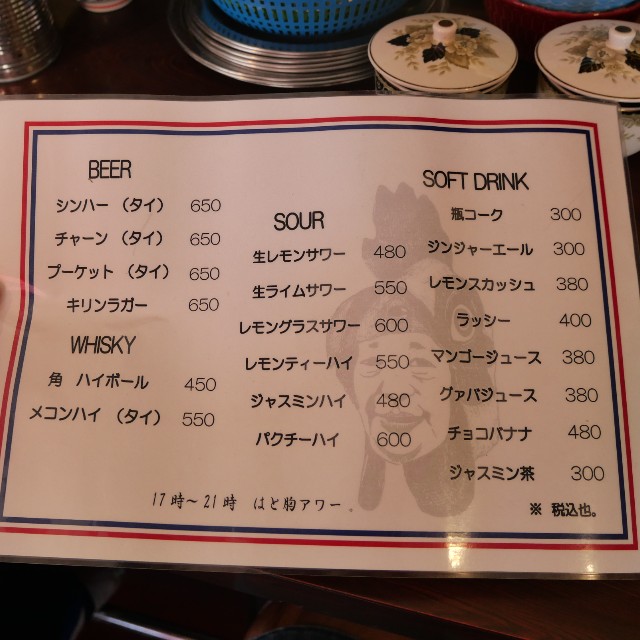 BEER
シンハー （タイ） 650
チャーン （タイ） 650
プーケット （タイ） 650
キリンラガー 650
WHISKY
角 ハイボール 450
メコンハイ （タイ） 550
SOUR
生レモンサワー 480
生ライムサワー 550
レモングラスサワー 600
レモンティーハイ 550
ジャスミンハイ 480
パクチーハイ 600
SOFT DRINK
瓶コーク 300
ジンジャーエール 300
レモンスカッシュ 380
ラッシー 400
マンゴージュース 380
グァバジュース 380
チョコバナナ 480
ジャスミン茶 300
17時～21時 はと胸アワー。
※ 税込也。